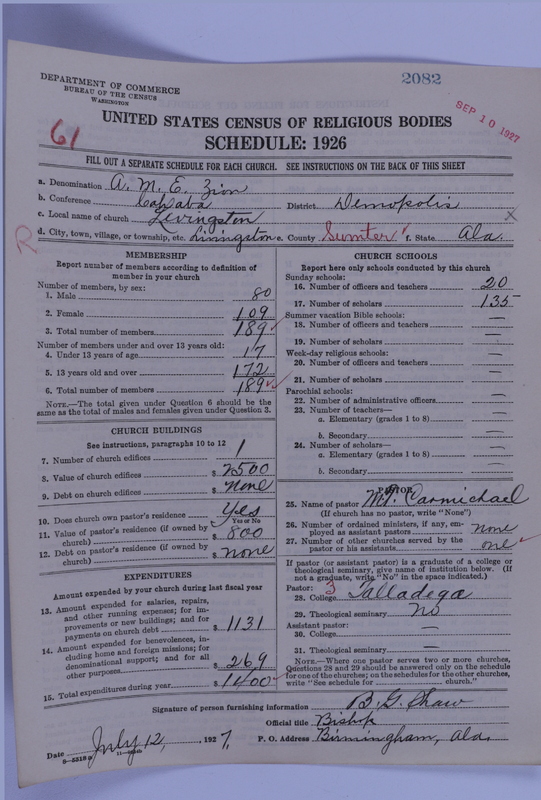 2082
DEPARTMENT OF COMMERCE
BUREAU OF THE CENSUS
WASHINGTON
SEP 10 1927
61
UNITED STATES CENSUS OF RELIGIOUS BODIES
SCHEDULE: 1926
FILL OUT A SEPARATE SCHEDULE FOR EACH CHURCH. SEE INSTRUCTIONS ON THE BACK OF THIS SHEET
a. Denomination A. M. E. Zion
b. Conference Cahaba District Demopolis
c. Local name of church Livingston X
R d. City, town, village, or township, etc. Livingston e. County Sumter f. State Ala.
MEMBERSHIP
Report number of members according to definition of member in your church
Number of members, by sex:
1. Male 80
2. Female 109
3. Total number of members 189
Number of members under and over 13 years old:
4. Under 13 years of age 17
5. 13 years old and over 172
6. Total number of members 189 ✓
NOTE.—The total given under Question 6 should be the
same as the total of males and females given under Question 3.
CHURCH BUILDINGS
See instructions, paragraphs 10 to 12
7. Number of church edifices 1
8. Value of church edifices $ 2500
9. Debt on church edifices $ none
10. Does church own pastor's residence Yes
Yes or No
11. Value of pastor's residence (if owned by
church) $ 800
12. Debt on pastor's residence (if owned by
church) $ none
EXPENDITURES
Amount expended by your church during last fiscal year
13. Amount expended for salaries, repairs,
and other running expenses; for im-
provements or new buildings; and for
payments on church debt $ 1131
14. Amount expended for benevolences, in-
cluding home and foreign missions; for
denominational support; and for all
other purposes $ 269
15. Total expenditures during year $ 1400 ✓
CHURCH SCHOOLS
Report here only schools conducted by this church
Sunday schools:
16. Number of officers and teachers 20
17. Number of scholars 135
Summer vacation Bible schools:
18. Number of officers and teachers —
19. Number of scholars —
Week-day religious schools:
20. Number of officers and teachers —
21. Number of scholars —
Parochial schools:
22. Number of administrative officers —
23. Number of teachers—
a. Elementary (grades 1 to 8) —
b. Secondary —
24. Number of scholars—
a. Elementary (grades 1 to 8) —
b. Secondary —
PASTOR
25. Name of pastor Carmichael
(If church has no pastor, write "None")
26. Number of ordained ministers, if any, em-
ployed as assistant pastors none
27. Number of other churches served by the
pastor or his assistants one ✓
If pastor (or assistant pastor) is a graduate of a college or
theological seminary, give name of institution below. (If
not a graduate, write "No" in the space indicated.)
Pastor: 3
28. College Talladega
29. Theological seminary No
Assistant pastor:
30. College —
31. Theological seminary —
NOTE.—Where one pastor serves two or more churches,
Questions 28 and 29 should be answered only on the schedule
for one of the churches; on the schedules for the other churches,
write "See schedule for church."
Signature of person furnishing information B. G. Shaw
Official title Bishop
Date July 12, 1927, P. O. Address Birmingham, Ala.